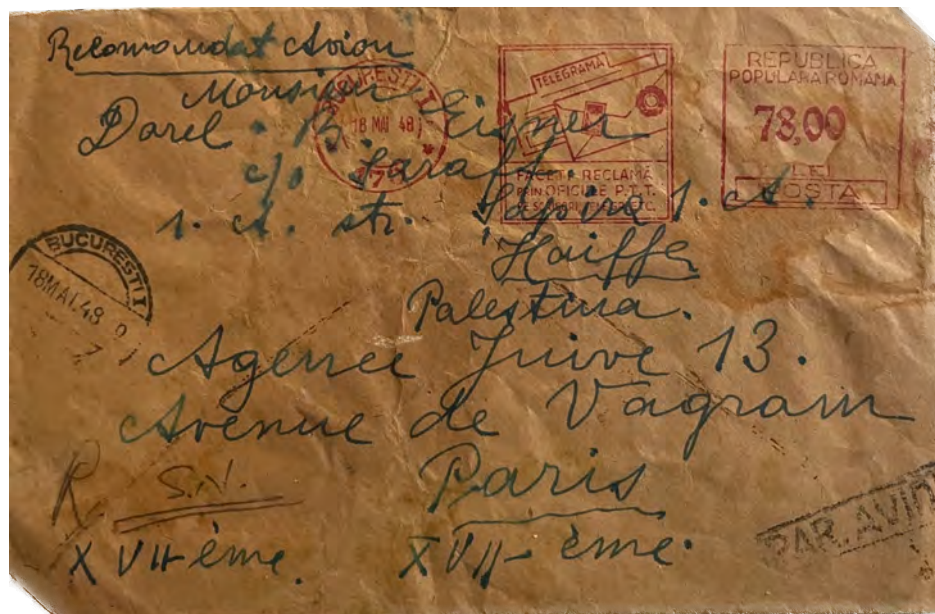 Recomandat Avion
Monsieur
Dorel B. Eisner
c/o Saraff
1. A. str. Sapira 1. A.
Haiffa
Palestina.
Agence Juive 13.
Avenue de Vagram
Paris
XVII-ème.
R. S.N.
XVII-ème.
BUCURESTI 1
18 MAI 48
TELEGRAMA
FACEȚI RECLAMĂ
PRIN OFICIILE P.T.T.
REPUBLICA
POPULARA ROMANA
78,00
LEI
POSTA
BUCURESTI 1
18 MAI.48
PAR AVION